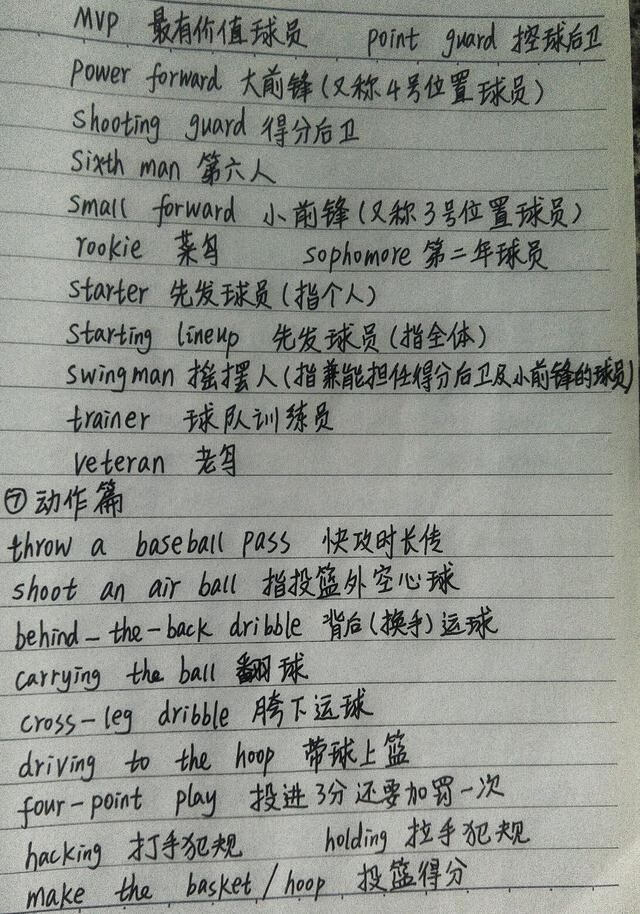 MVP 最有价值球员 point guard 控球后卫
power forward 大前锋(又称4号位置球员)
shooting guard 得分后卫
sixth man 第六人
small forward 小前锋(又称3号位置球员)
rookie 菜鸟 sophomore 第二年球员
starter 先发球员(指个人)
starting lineup 先发球员(指全体)
swingman 摇摆人(指兼能担任得分后卫及小前锋的球员)
trainer 球队训练员
veteran 老鸟
⑦动作篇
throw a baseball pass 快攻时长传
shoot an air ball 指投篮外空心球
behind-the-back dribble 背后(换手)运球
carrying the ball 翻球
cross-leg dribble 胯下运球
driving to the hoop 带球上篮
four-point play 投进3分还要加罚一次
hacking 打手犯规 holding 拉手犯规
make the basket/hoop 投篮得分